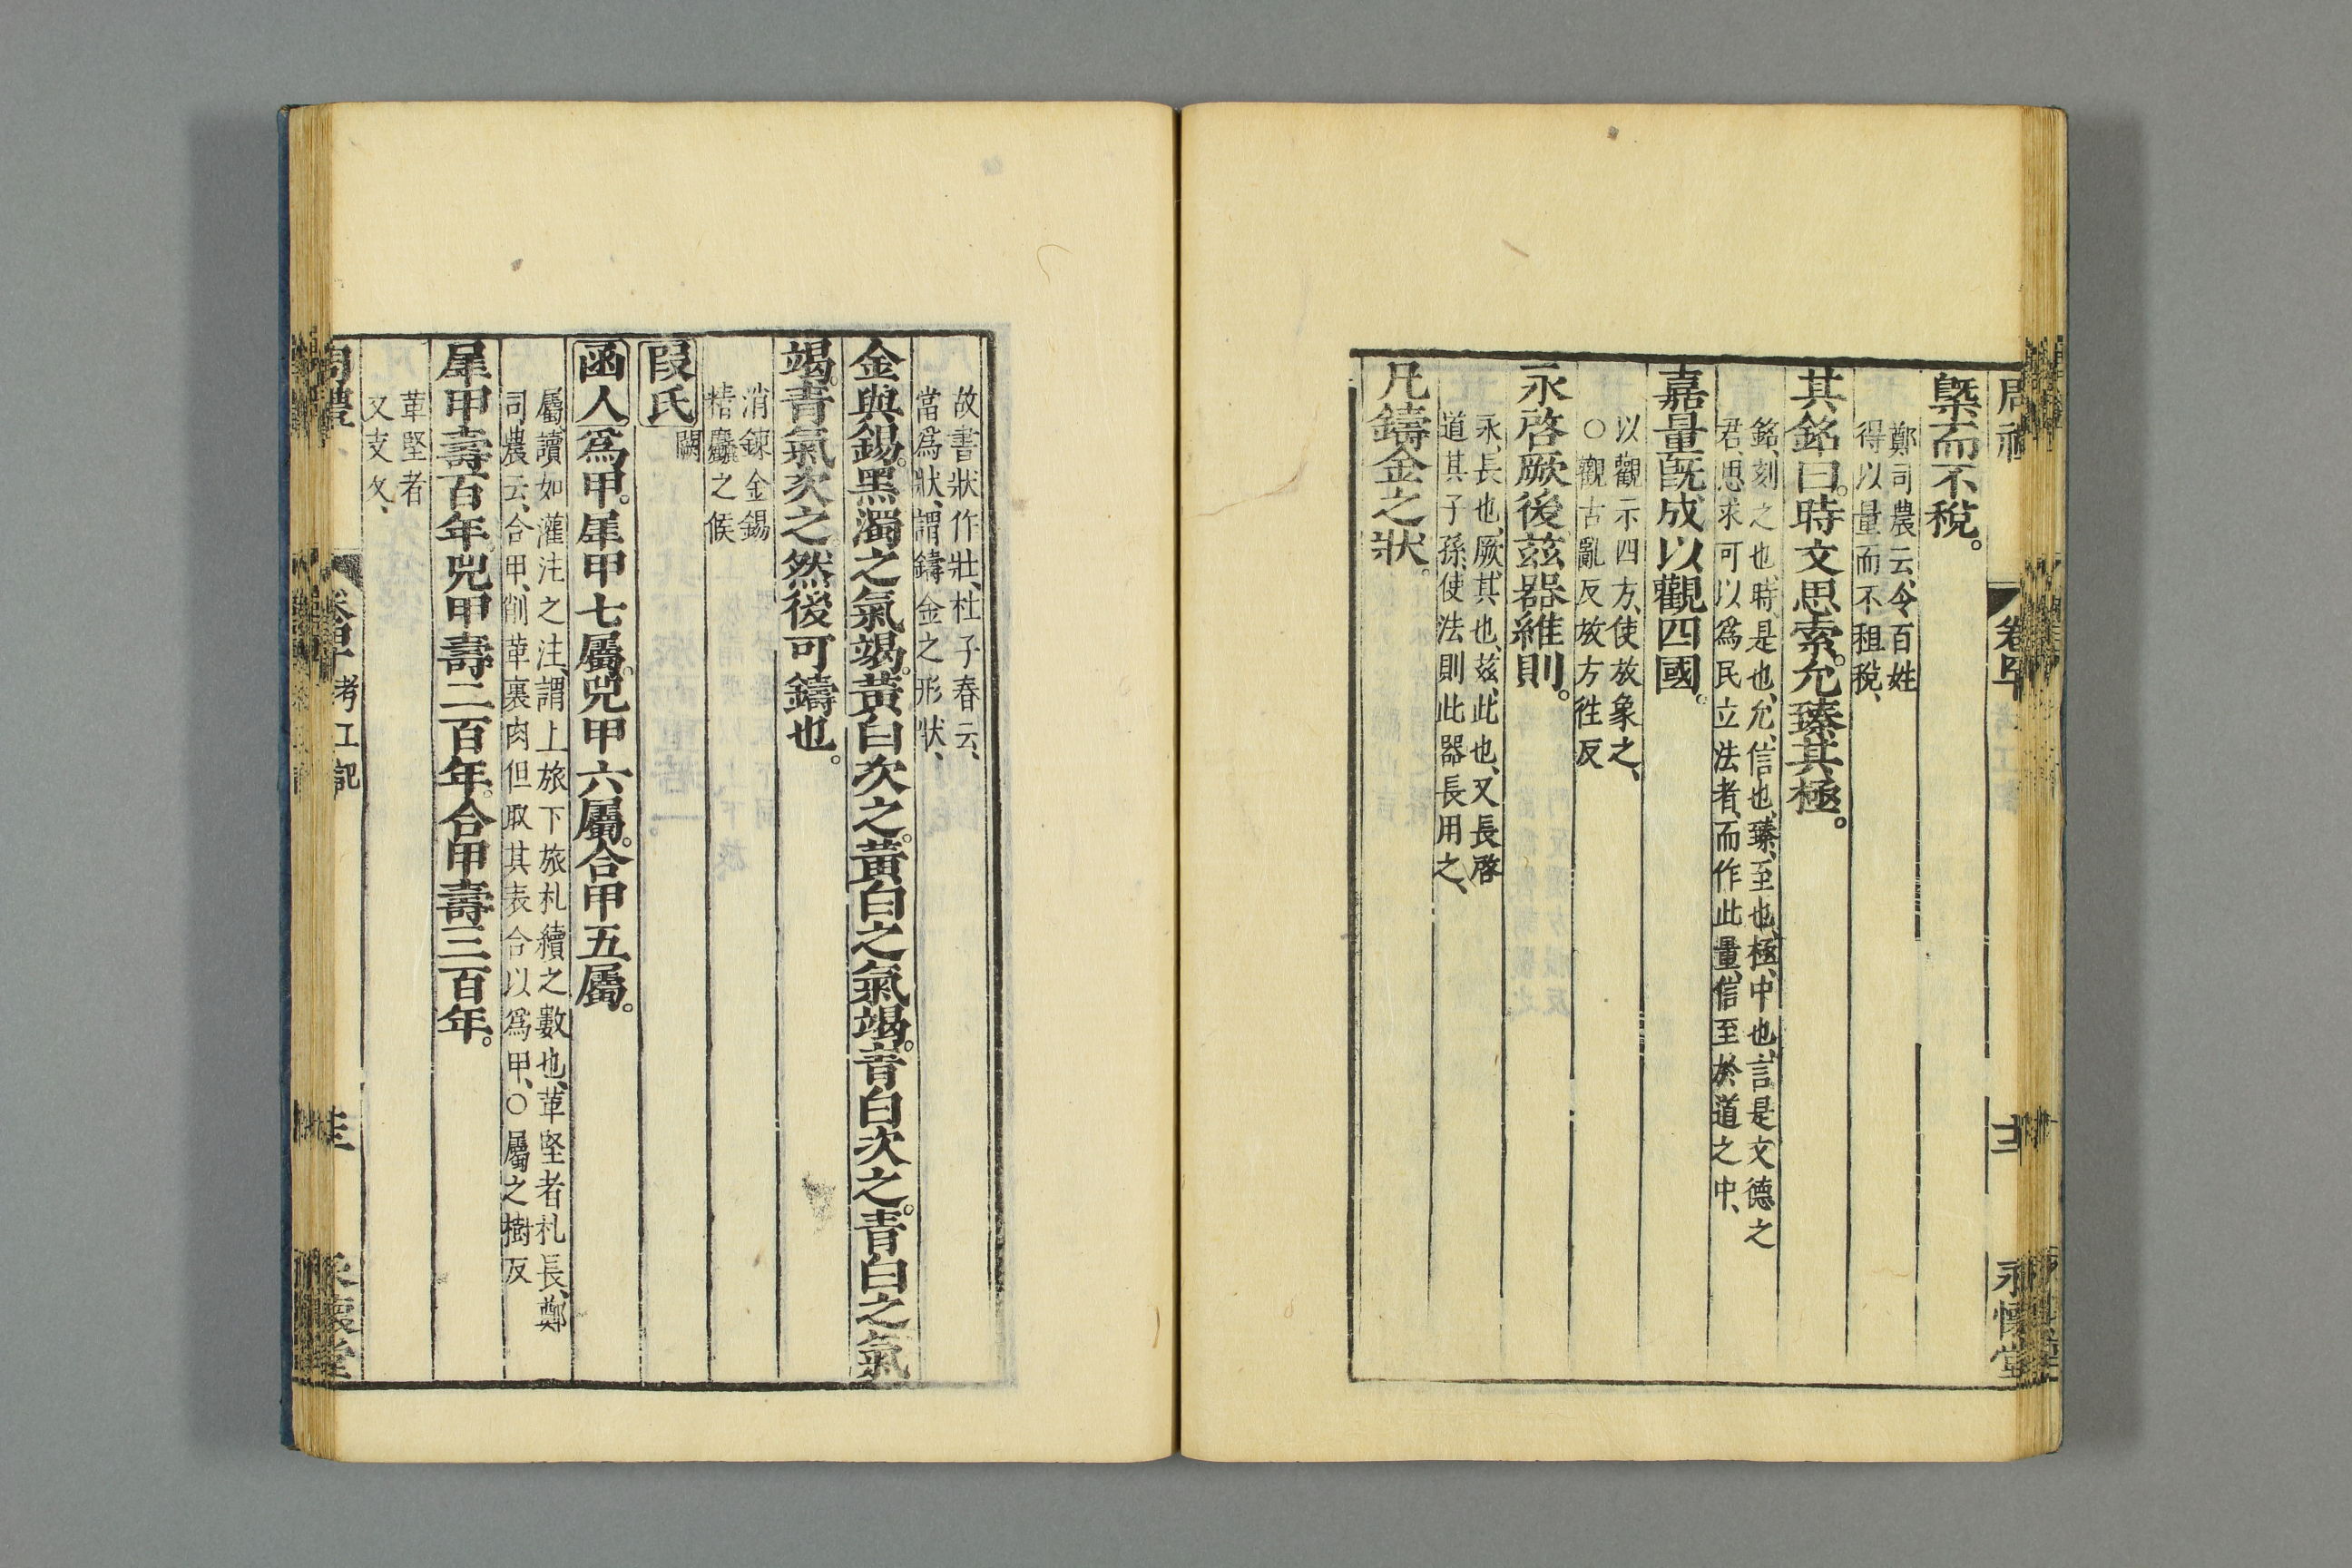 槩而不稅。
鄭司農云、令百姓
得以量而不租稅、
其銘曰。時文思索。允臻其極。
銘、刻之也、時、是也、允、信也、臻、至也、極、中也、言是文德之
君、思求可以為民立法者、而作此量、信至於道之中、
嘉量旣成以觀四國。
以觀示四方、使放象之、
○觀古亂反放方徃反
永啓厥後兹器維則。
永、長也、厥、其也、兹、此也、又長啓
道其子孫、使法則此器長用之、
凡鑄金之狀。
故書狀作壯、杜子春云、
當爲狀、謂鑄金之形狀、
金與錫。黑濁之氣竭。黃白次之。黃白之氣竭。青白次之。青白之氣
竭。青氣次之然後可鑄也。
消鍊金錫
精麤之候
段氏 闕
函人爲甲。犀甲七屬。兕甲六屬。合甲五屬。
屬讀如灌注之注、謂上旅下旅札續之數也、革堅者札長、鄭
司農云、合甲、削革裏肉但取其表合以爲甲、○屬之樹反
犀甲壽百年。兕甲壽二百年。合甲壽三百年。
革堅者
又支久、
周禮 卷四十 考工記 永懷堂